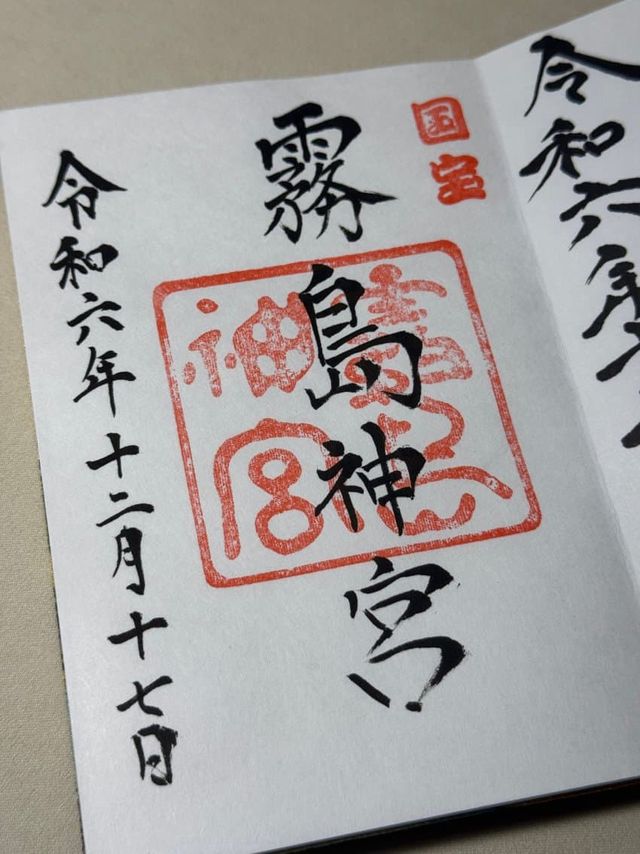 令和六年
国宝
霧島神宮
霧島
神宮
令和六年十二月十七日